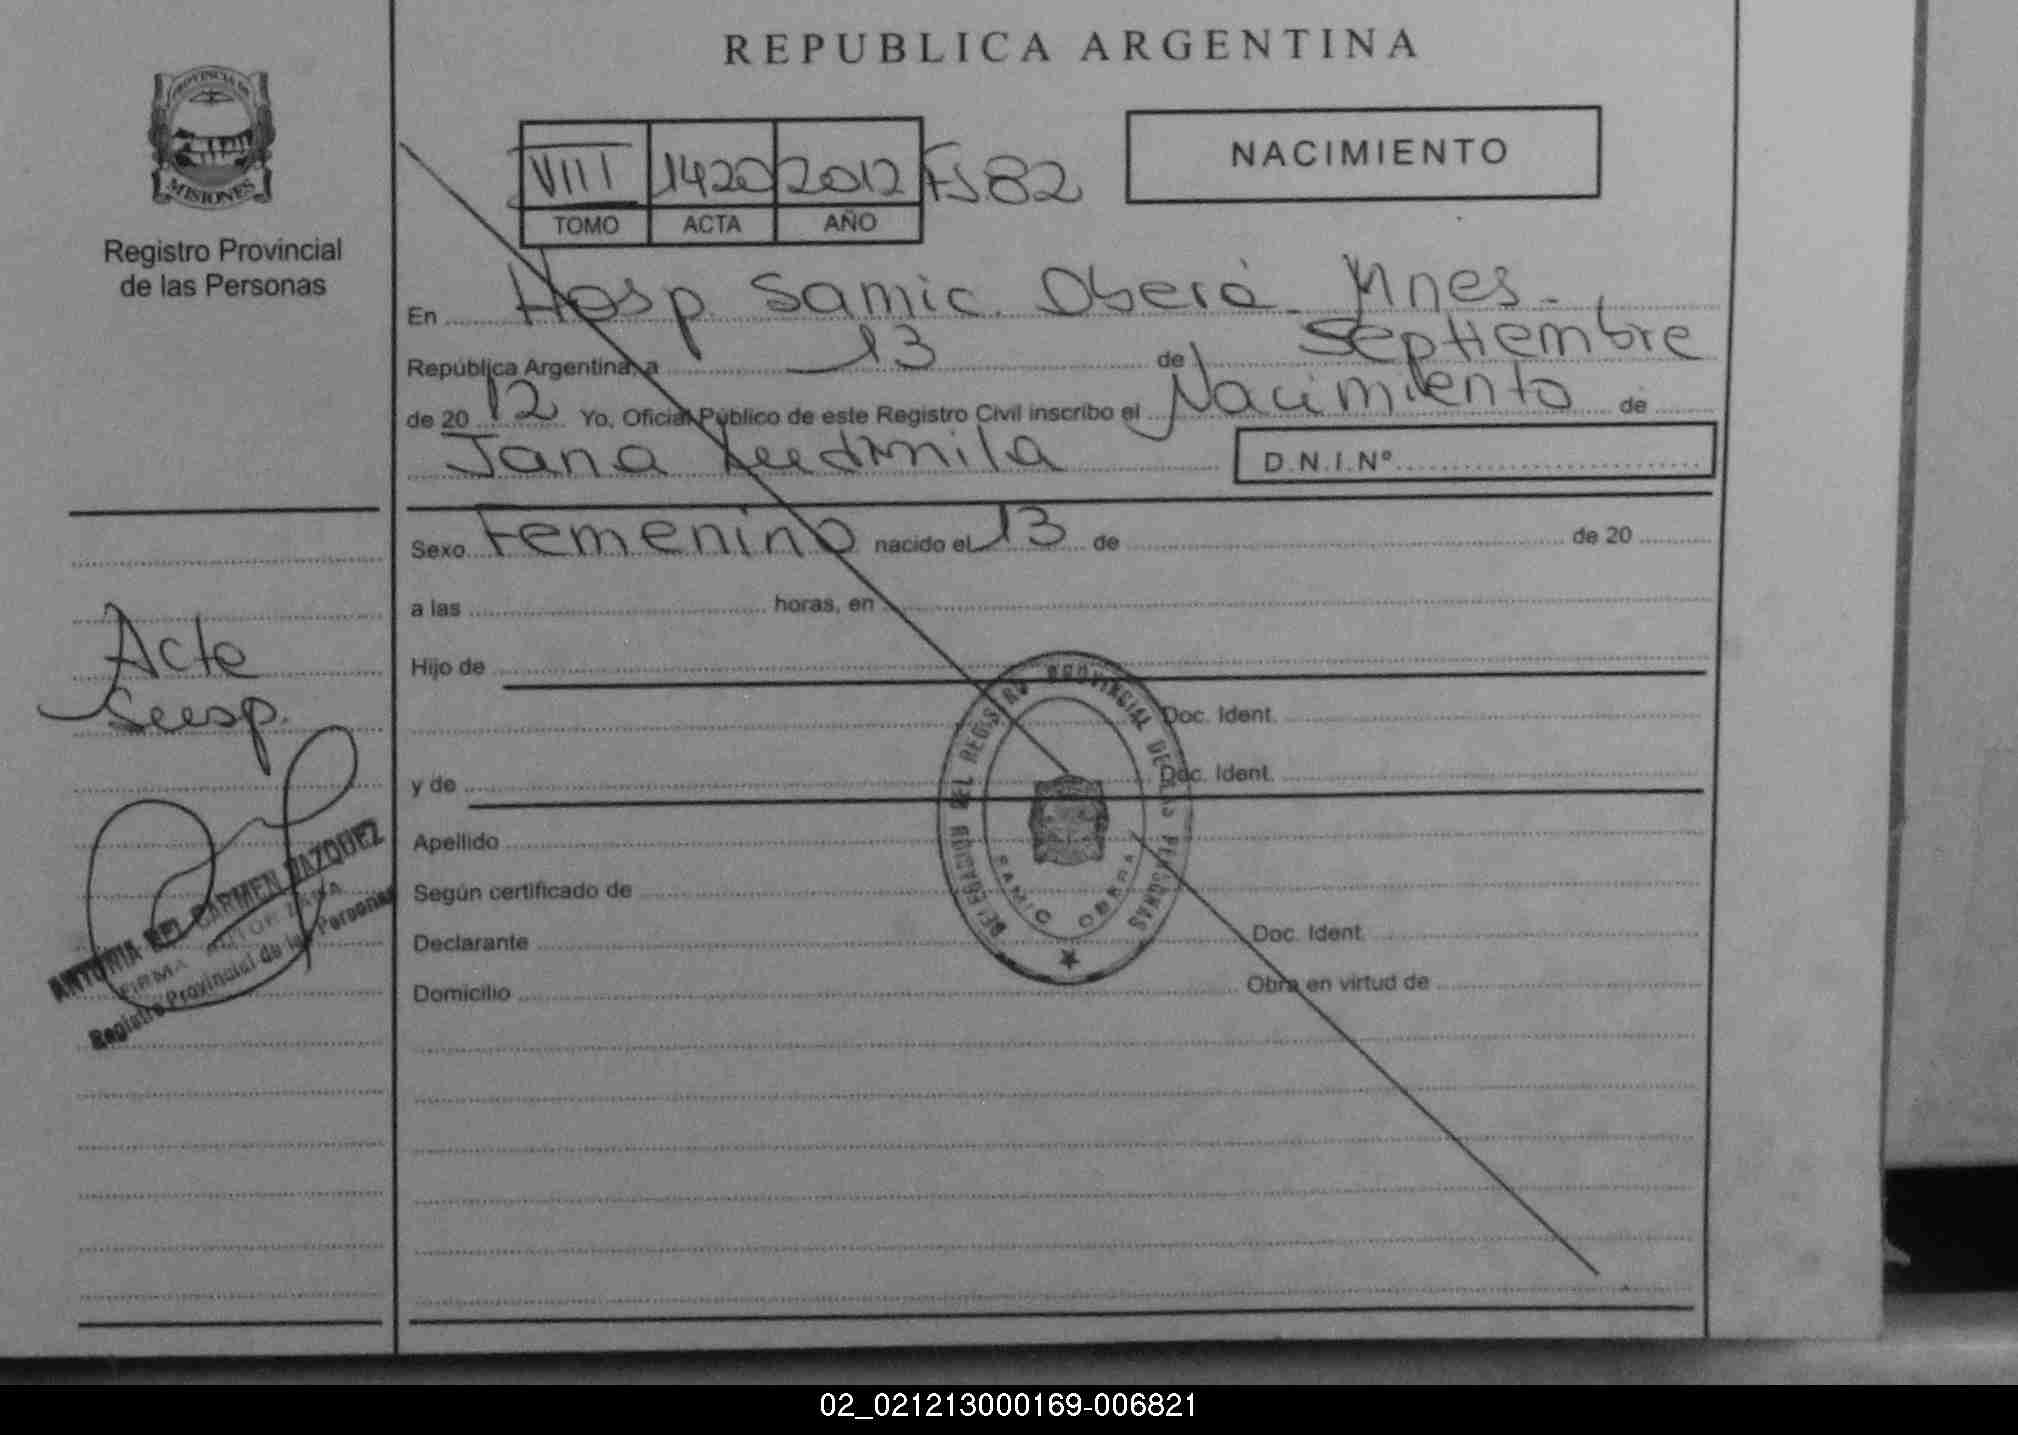 REPUBLICA ARGENTINA
PROVINCIA DE
MISIONES
Registro Provincial
de las Personas
VIII 1420 2012 Fs 82
TOMO ACTA AÑO
NACIMIENTO
En Hosp. Samic. Oberá. Mnes.
República Argentina, a 13 de Septiembre
de 2012 Yo, Oficial Público de este Registro Civil inscribo el Nacimiento de
Jana Ludmila D.N.I.Nº
Sexo Femenino nacido el 13 de de 20
a las horas, en
Hijo de
Doc. Ident.
y de Doc. Ident.
Apellido
Según certificado de
Declarante Doc. Ident.
Domicilio Obra en virtud de
Acta
Susp.
ANTONIA DEL CARMEN VAZQUEZ
FIRMA AUTORIZADA
Registro Provincial de las Personas
DELEGACION DEL REGISTRO PROVINCIAL DE LAS PERSONAS
SAMIC OBERA
02_021213000169-006821